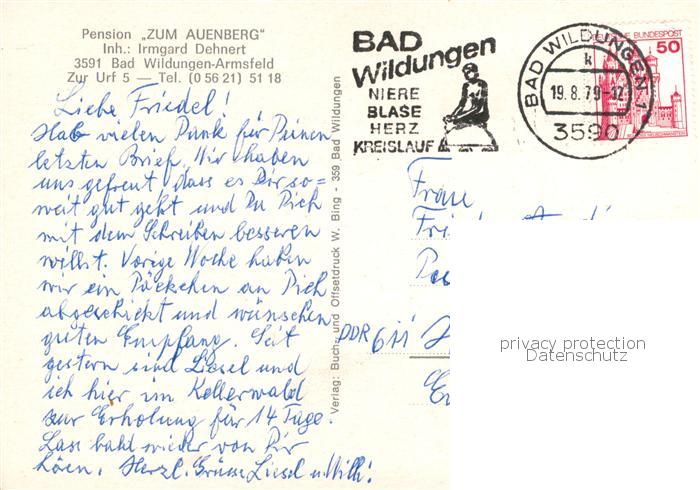 Pension „ZUM AUENBERG"
Inh.: Irmgard Dehnert
3591 Bad Wildungen-Armsfeld
Zur Urf 5 — Tel. (0 56 21) 51 18
Liebe Friedel!
Hab vielen Dank für Deinen
letzten Brief. Wir haben
uns gefreut, dass es Dir so-
weit gut geht und Du Dich
mit dem Schreiben besseren
willst. Vorige Woche haben
wir ein Päckchen an Dich
abgeschickt und wünschen
guten Empfang. Seit
gestern sind Liesel und
ich hier im Kellerwald
zur Erholung für 14 Tage.
Lass bald wieder von Dir
hören. Herzl. Grüsse Liesel u. Willi!
Verlag: Buch- und Offsetdruck W. Bing - 359 Bad Wildungen
BAD
Wildungen
NIERE
BLASE
HERZ
KREISLAUF
BAD WILDUNGEN 1
k
19.8.79-12
3590
DEUTSCHE BUNDESPOST
50
Frau
DDR 611
privacy protection
Datenschutz